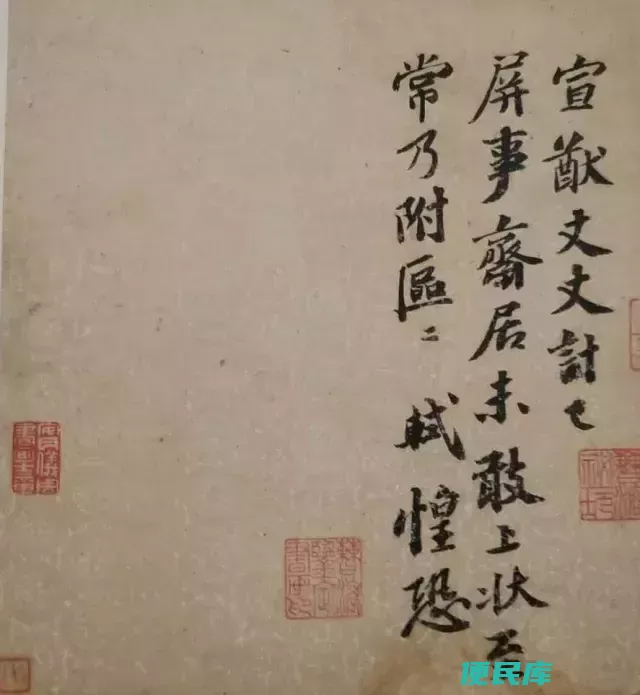 宣猷丈丈計已
屏事齋居未敢上狀至
常乃附區〻 軾惶恐
便民库